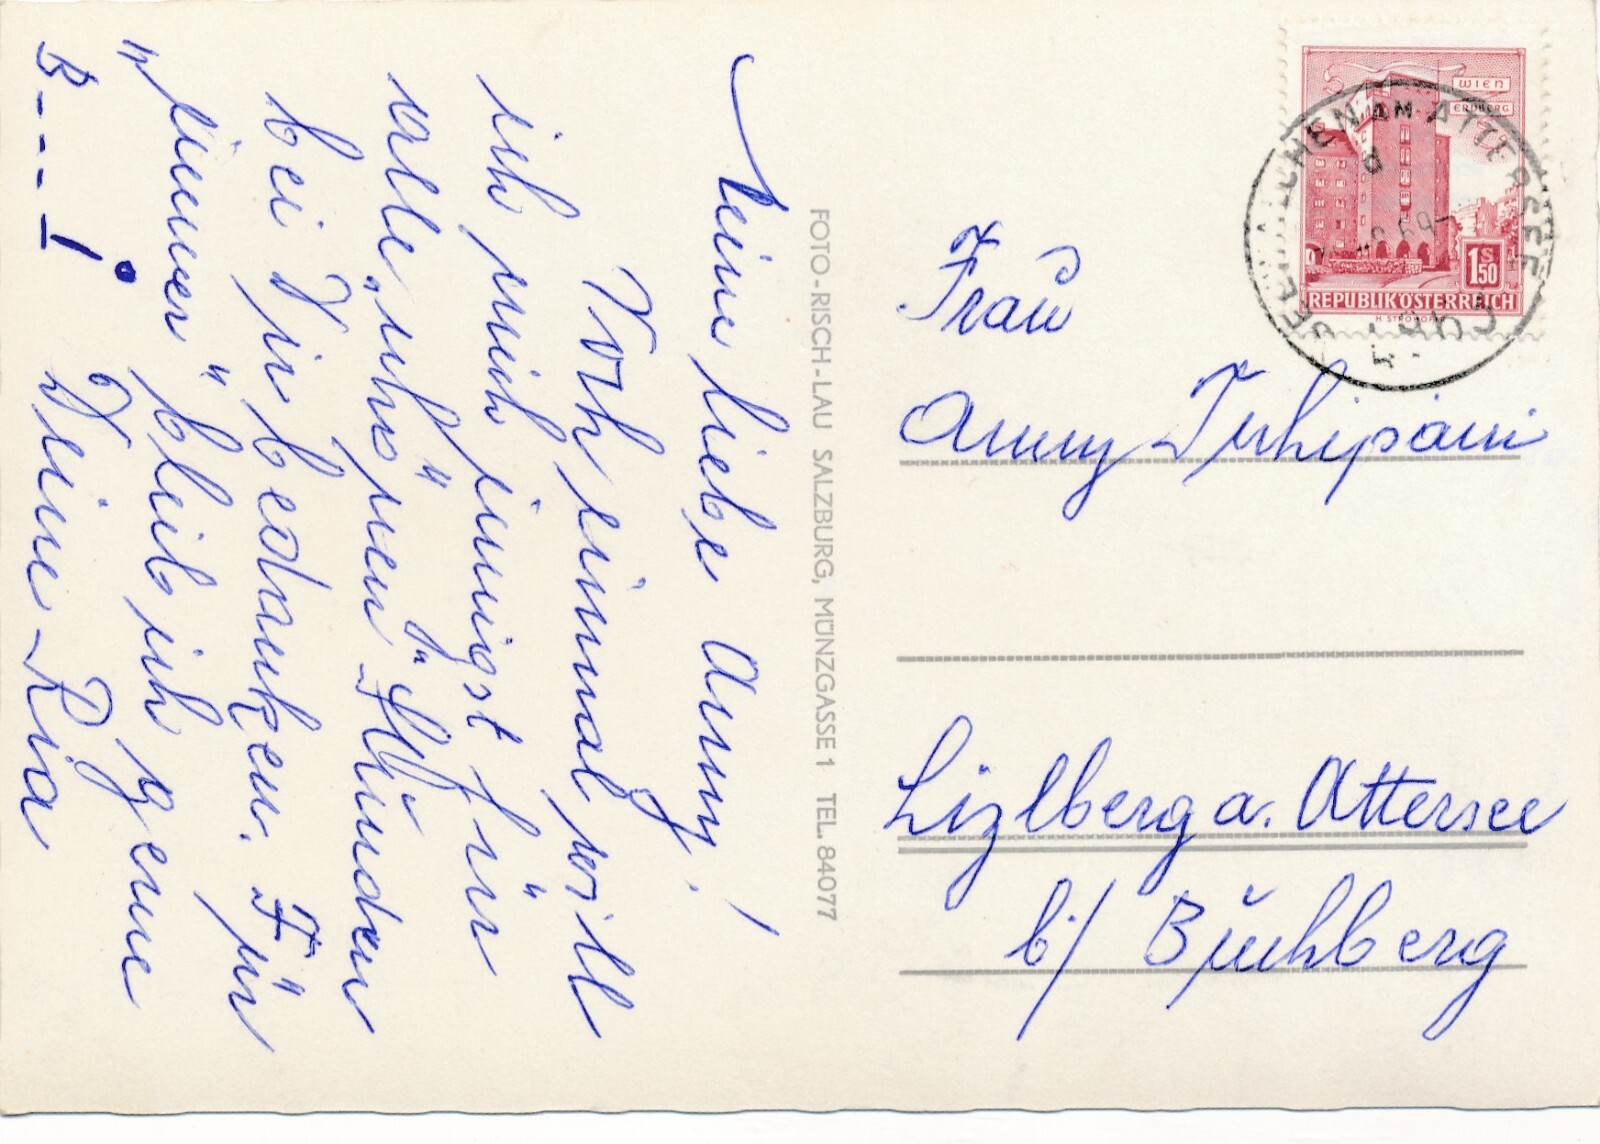 Meine liebe Anny!
Noch einmal will
ich mich innigst für
alle "schönen" Stunden
bei Dir bedanken. Für
"immer" bleib ich gerne
Deine Ria
B---!
FOTO-RISCH-LAU SALZBURG, MÜNZGASSE 1 TEL. 84077
WIEN
ERDBERG
1 S 50
REPUBLIK ÖSTERREICH
AM ATTERSEE
Frau
Anny
Lizlberg a. Attersee
b/ Buchberg